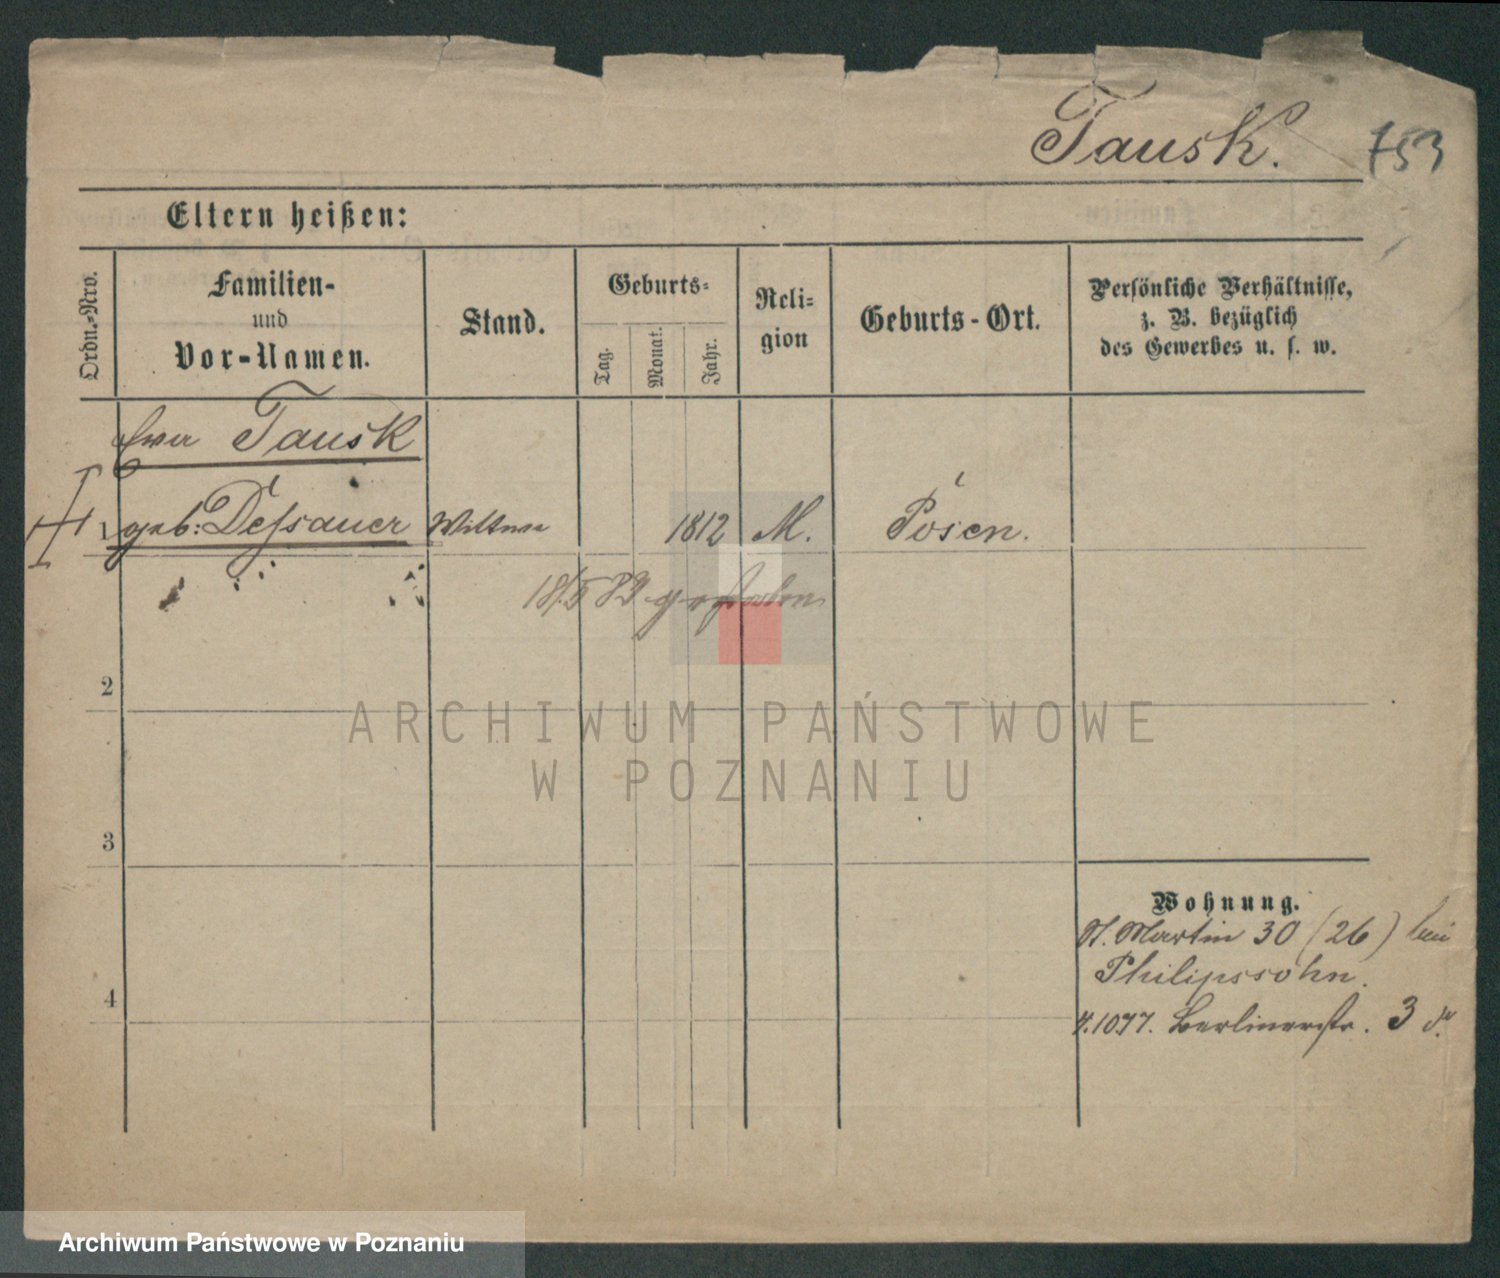 Tausk. 753
Eltern heißen:
Ordn.-Nro.
Familien-
und
Vor-Namen.
Stand.
Geburts-
Tag.
Monat.
Jahr.
Reli-
gion
Geburts-Ort.
Persönliche Verhältnisse,
z. B. bezüglich
des Gewerbes u. s. w.
Tausk
1 geb: Deßauer Wittwe 1812 M. Posen.
18/5 89 gestorben
2
3
4
Wohnung.
St. Martin 30 (26) bei
Philipssohn.
Berlinerstr. 3
ARCHIWUM PAŃSTWOWE
W POZNANIU
Archiwum Państwowe w Poznaniu